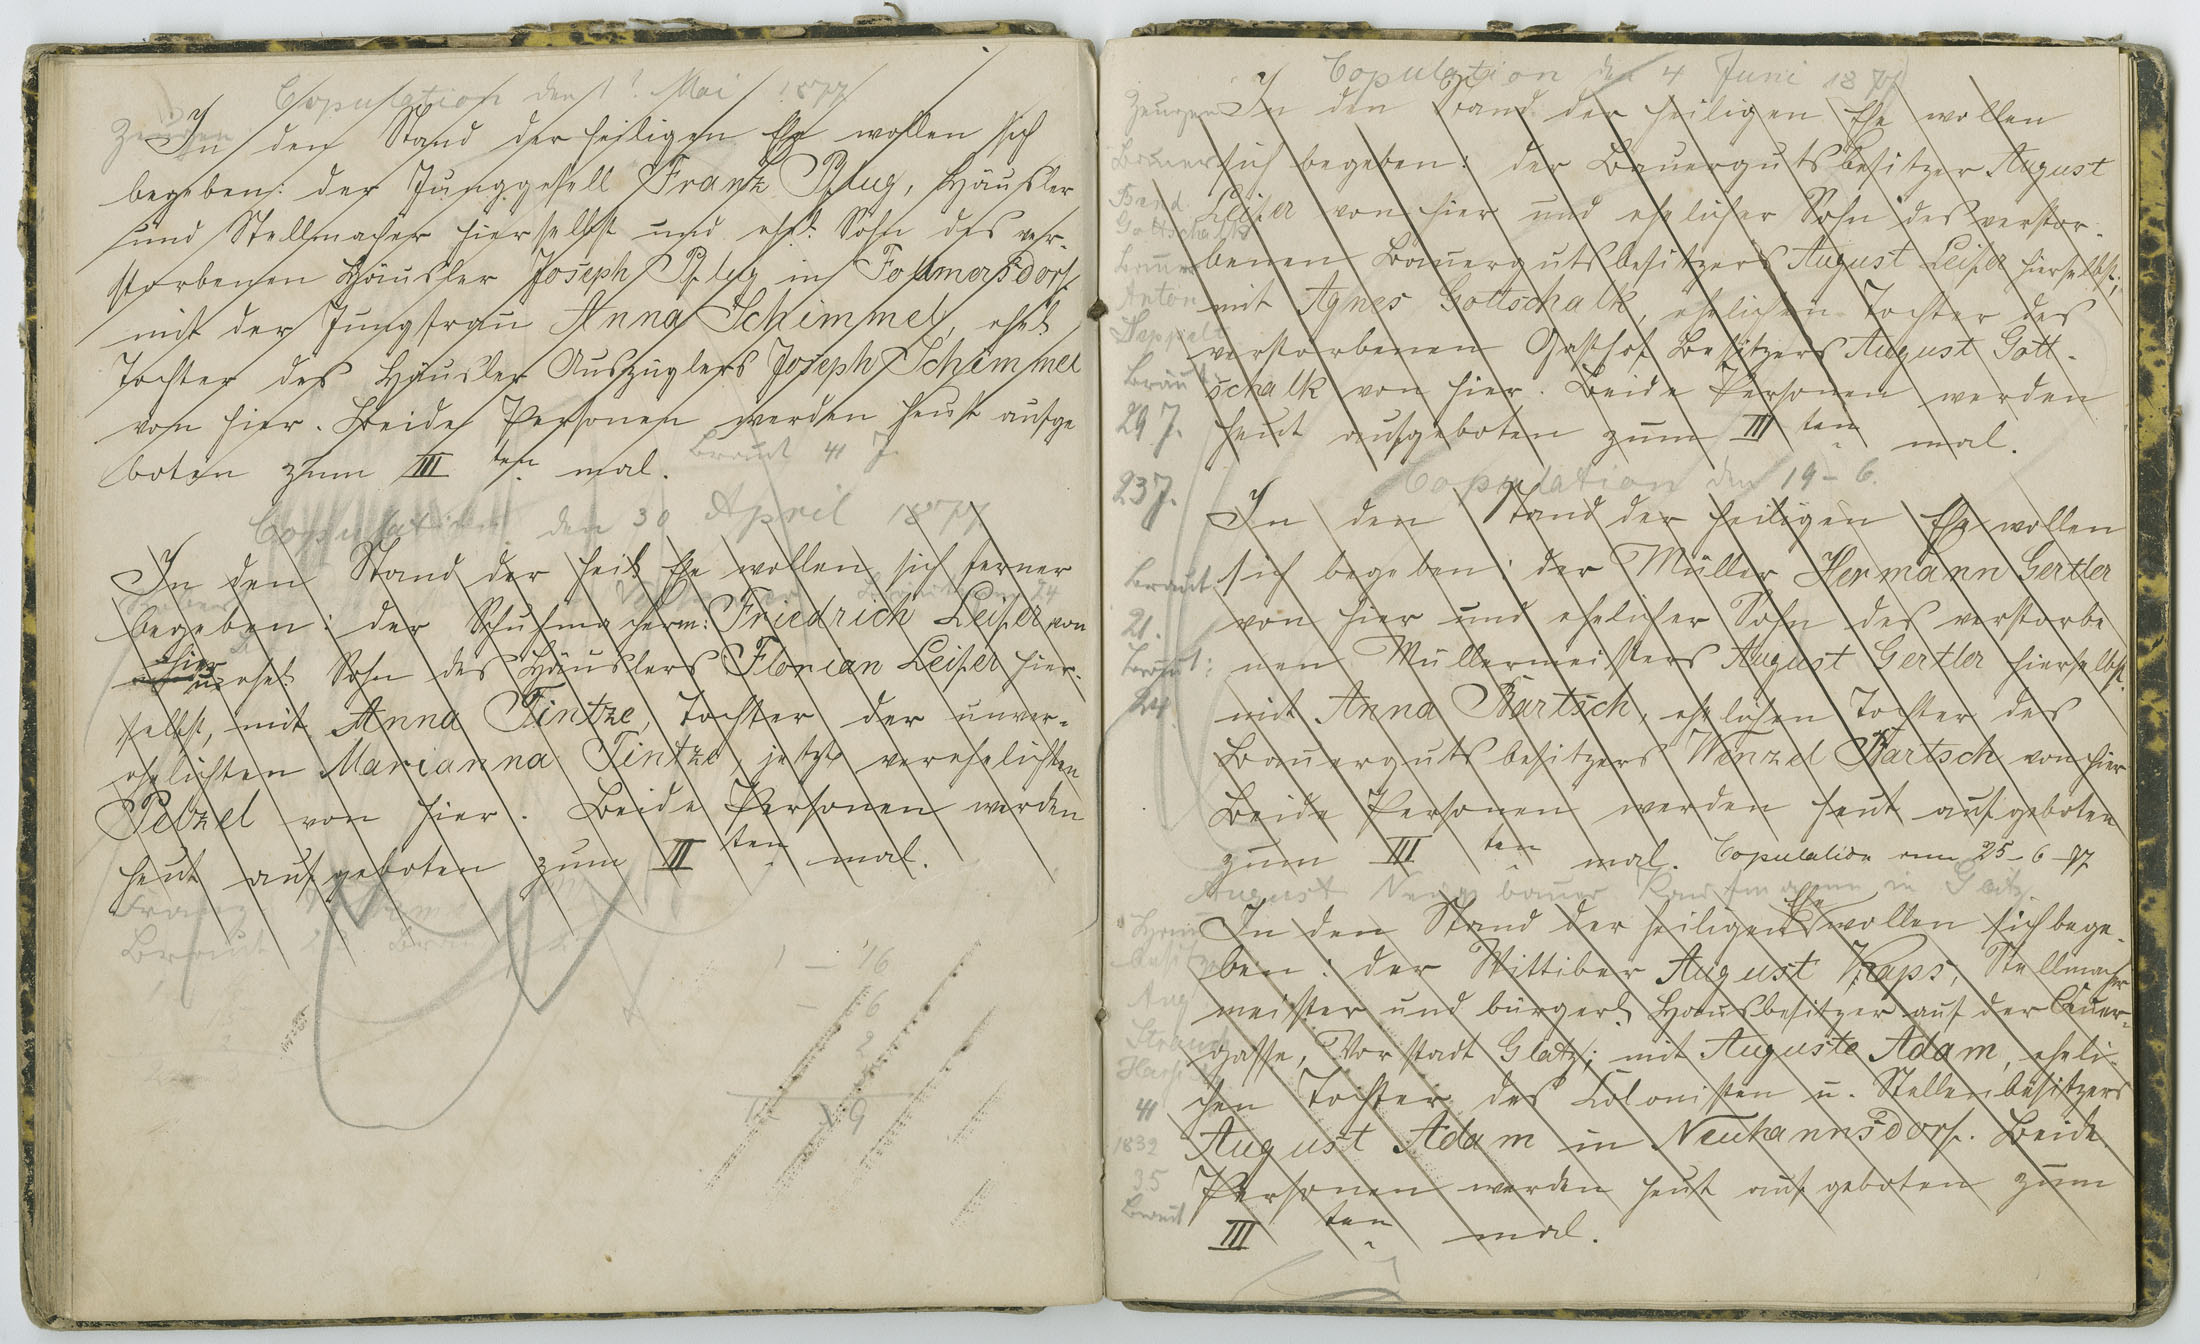 Copulation den 1? Mai 1877
Zeugen
In den Stand der heiligen Ehe wollen sich
begeben: der Junggesell Franz Pflug, Häusler
und Stellmacher hierselbst und ehel. Sohn des ver-
storbenen Häusler Joseph Pflug in Follmersdorf
mit der Jungfrau Anna Schimmel, ehel.
Tochter des Häusler Auszüglers Joseph Schimmel
von hier. Beide Personen werden heut aufge
boten zum III ten mal.
Braut 41 J.
Copulation den 30 April 1877
In den Stand der heil. Ehe wollen sich ferner
begeben: der Schuhmacherm: Friedrich Leiser von
hier u. ehel. Sohn des Häuslers Florian Leiser hier-
selbst, mit Anna Tintze, Tochter der unver-
ehelichten Marianna Tintze, jetzt verehelichten
Pelzel von hier. Beide Personen werden
heut aufgeboten zum II ten mal.
Franz
Braut
1 – 16
– 6
2
9
Copulation den 4 Juni 1877
Zeugen
In den Stand der heiligen Ehe wollen
sich begeben: der Bauergutsbesitzer August
Leiser von hier und ehelicher Sohn des verstor-
benen Bauergutsbesitzers August Leiser hierselbst,
mit Agnes Gottschalk, ehelichen Tochter des
verstorbenen Gasthof Besitzers August Gott-
schalk von hier. Beide Personen werden
heut aufgeboten zum III ten mal.
Bauer
Gottschalk
Bauer
Anton
29 J.
23 J.
Copulation den 19 – 6.
In den Stand der heiligen Ehe wollen
sich begeben: der Müller Hermann Gertler
von hier und ehelicher Sohn des verstorbe
nen Müllermeisters August Gertler hierselbst.
mit Anna Bartsch, ehelichen Tochter des
Bauergutsbesitzers Wenzel Bartsch von hier
Beide Personen werden heut aufgeboten
zum III ten mal. Copulation am 25 – 6 – 77
Braut
21.
24.
August Neugebauer Kaufmann in Glatz
In den Stand der heiligen Ehe wollen sich bege-
ben: der Wittiber August Kaps, Stellmacher
meister und bürgerl. Hausbesitzer auf der Quer-
gasse, Vorstadt Glatz; mit Auguste Adam, eheli-
chen Tochter des Colonisten u. Stellenbesitzers
August Adam in Neuhannsdorf. Beide
Personen werden heut aufgeboten zum
III ten mal.
Aug
41
1832
35
Braut